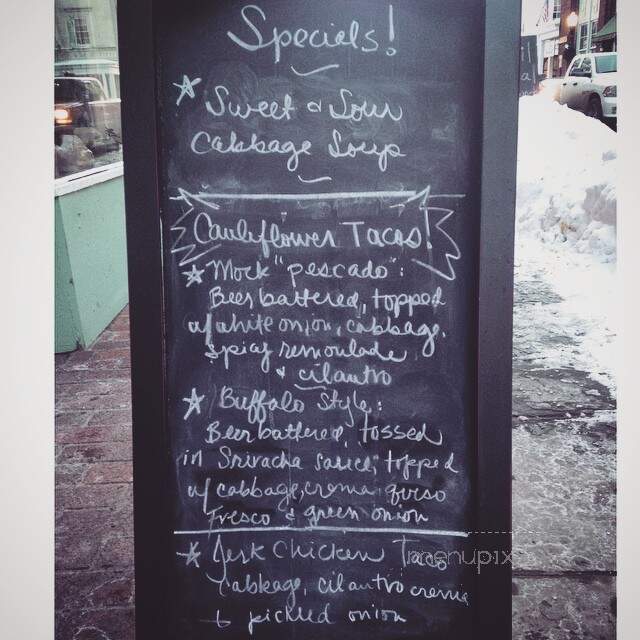 Specials!
Sweet & Sour
Cabbage Soup
Cauliflower Tacos!
Mock "pescado":
Beer battered, topped
w/ white onion, cabbage,
Spicy remoulade
& cilantro
Buffalo Style:
Beer battered, tossed
in Sriracha sauce, topped
w/ cabbage, crema queso
Fresco & green onion
Jerk Chicken Taco
Cabbage, cilantro crema
& pickled onion
menupix